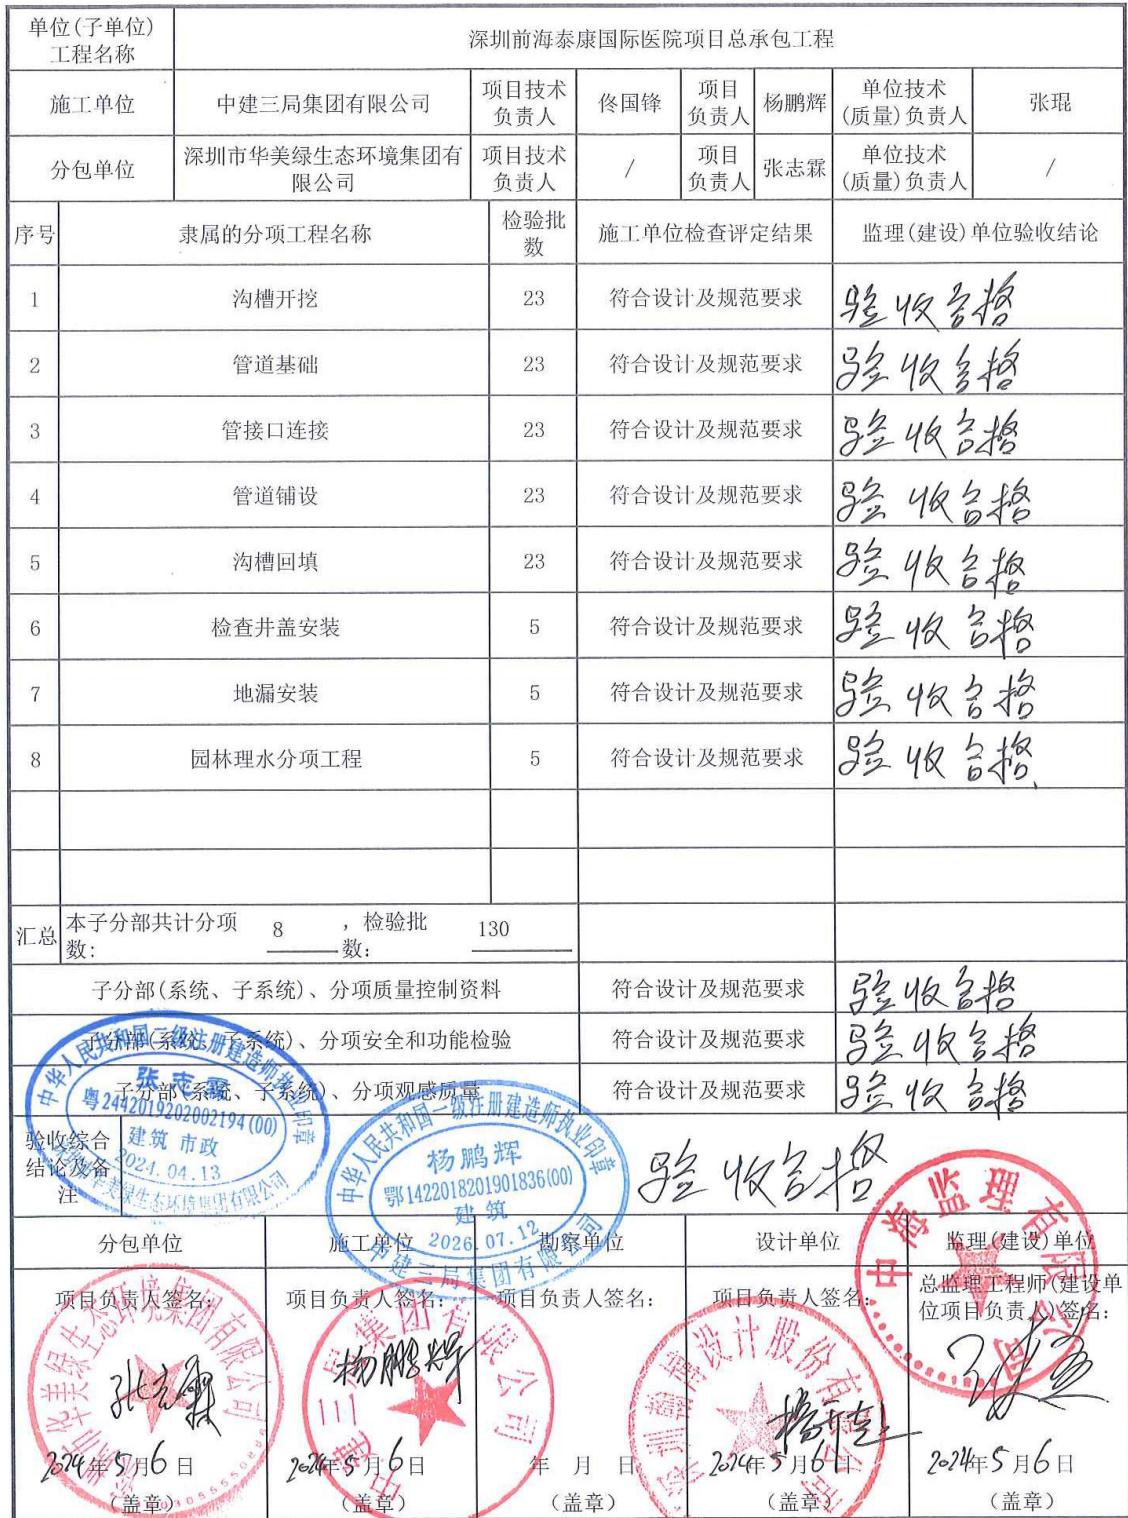 单位(子单位)工程名称 深圳前海泰康国际医院项目总承包工程
施工单位 中建三局集团有限公司 项目技术负责人 佟国锋 项目负责人 杨鹏辉 单位技术(质量)负责人 张琨
分包单位 深圳市华美绿生态环境集团有限公司 项目技术负责人 / 项目负责人 张志霖 单位技术(质量)负责人 /
序号 隶属的分项工程名称 检验批数 施工单位检查评定结果 监理(建设)单位验收结论
1 沟槽开挖 23 符合设计及规范要求 验收合格
2 管道基础 23 符合设计及规范要求 验收合格
3 管接口连接 23 符合设计及规范要求 验收合格
4 管道铺设 23 符合设计及规范要求 验收合格
5 沟槽回填 23 符合设计及规范要求 验收合格
6 检查井盖安装 5 符合设计及规范要求 验收合格
7 地漏安装 5 符合设计及规范要求 验收合格
8 园林理水分项工程 5 符合设计及规范要求 验收合格
汇总 本子分部共计分项数: 8 ，检验批数: 130
子分部(系统、子系统)、分项质量控制资料 符合设计及规范要求 验收合格
子分部(系统、子系统)、分项安全和功能检验 符合设计及规范要求 验收合格
子分部(系统、子系统)、分项观感质量 符合设计及规范要求 验收合格
中华人民共和国二级注册建造师执业印章
张志霖
粤2442019202002194(00)
建筑 市政
2024.04.13
华美绿生态环境集团有限公司
验收综合结论及备注 验收合格
中华人民共和国一级注册建造师执业印章
杨鹏辉
鄂1422018201901836(00)
建筑
2026.07.12
中建三局集团有限公司
分包单位 施工单位 勘察单位 设计单位 监理(建设)单位
中海监理有限公司
项目负责人签名: 项目负责人签名: 项目负责人签名: 项目负责人签名: 总监理工程师(建设单位项目负责人)签名:
华美绿生态环境集团有限公司
中建三局集团有限公司
设计股份有限公司
张志霖 杨鹏辉
2024年5月6日 2024年5月6日 年 月 日 2024年5月6日 2024年5月6日
(盖章) (盖章) (盖章) (盖章) (盖章)